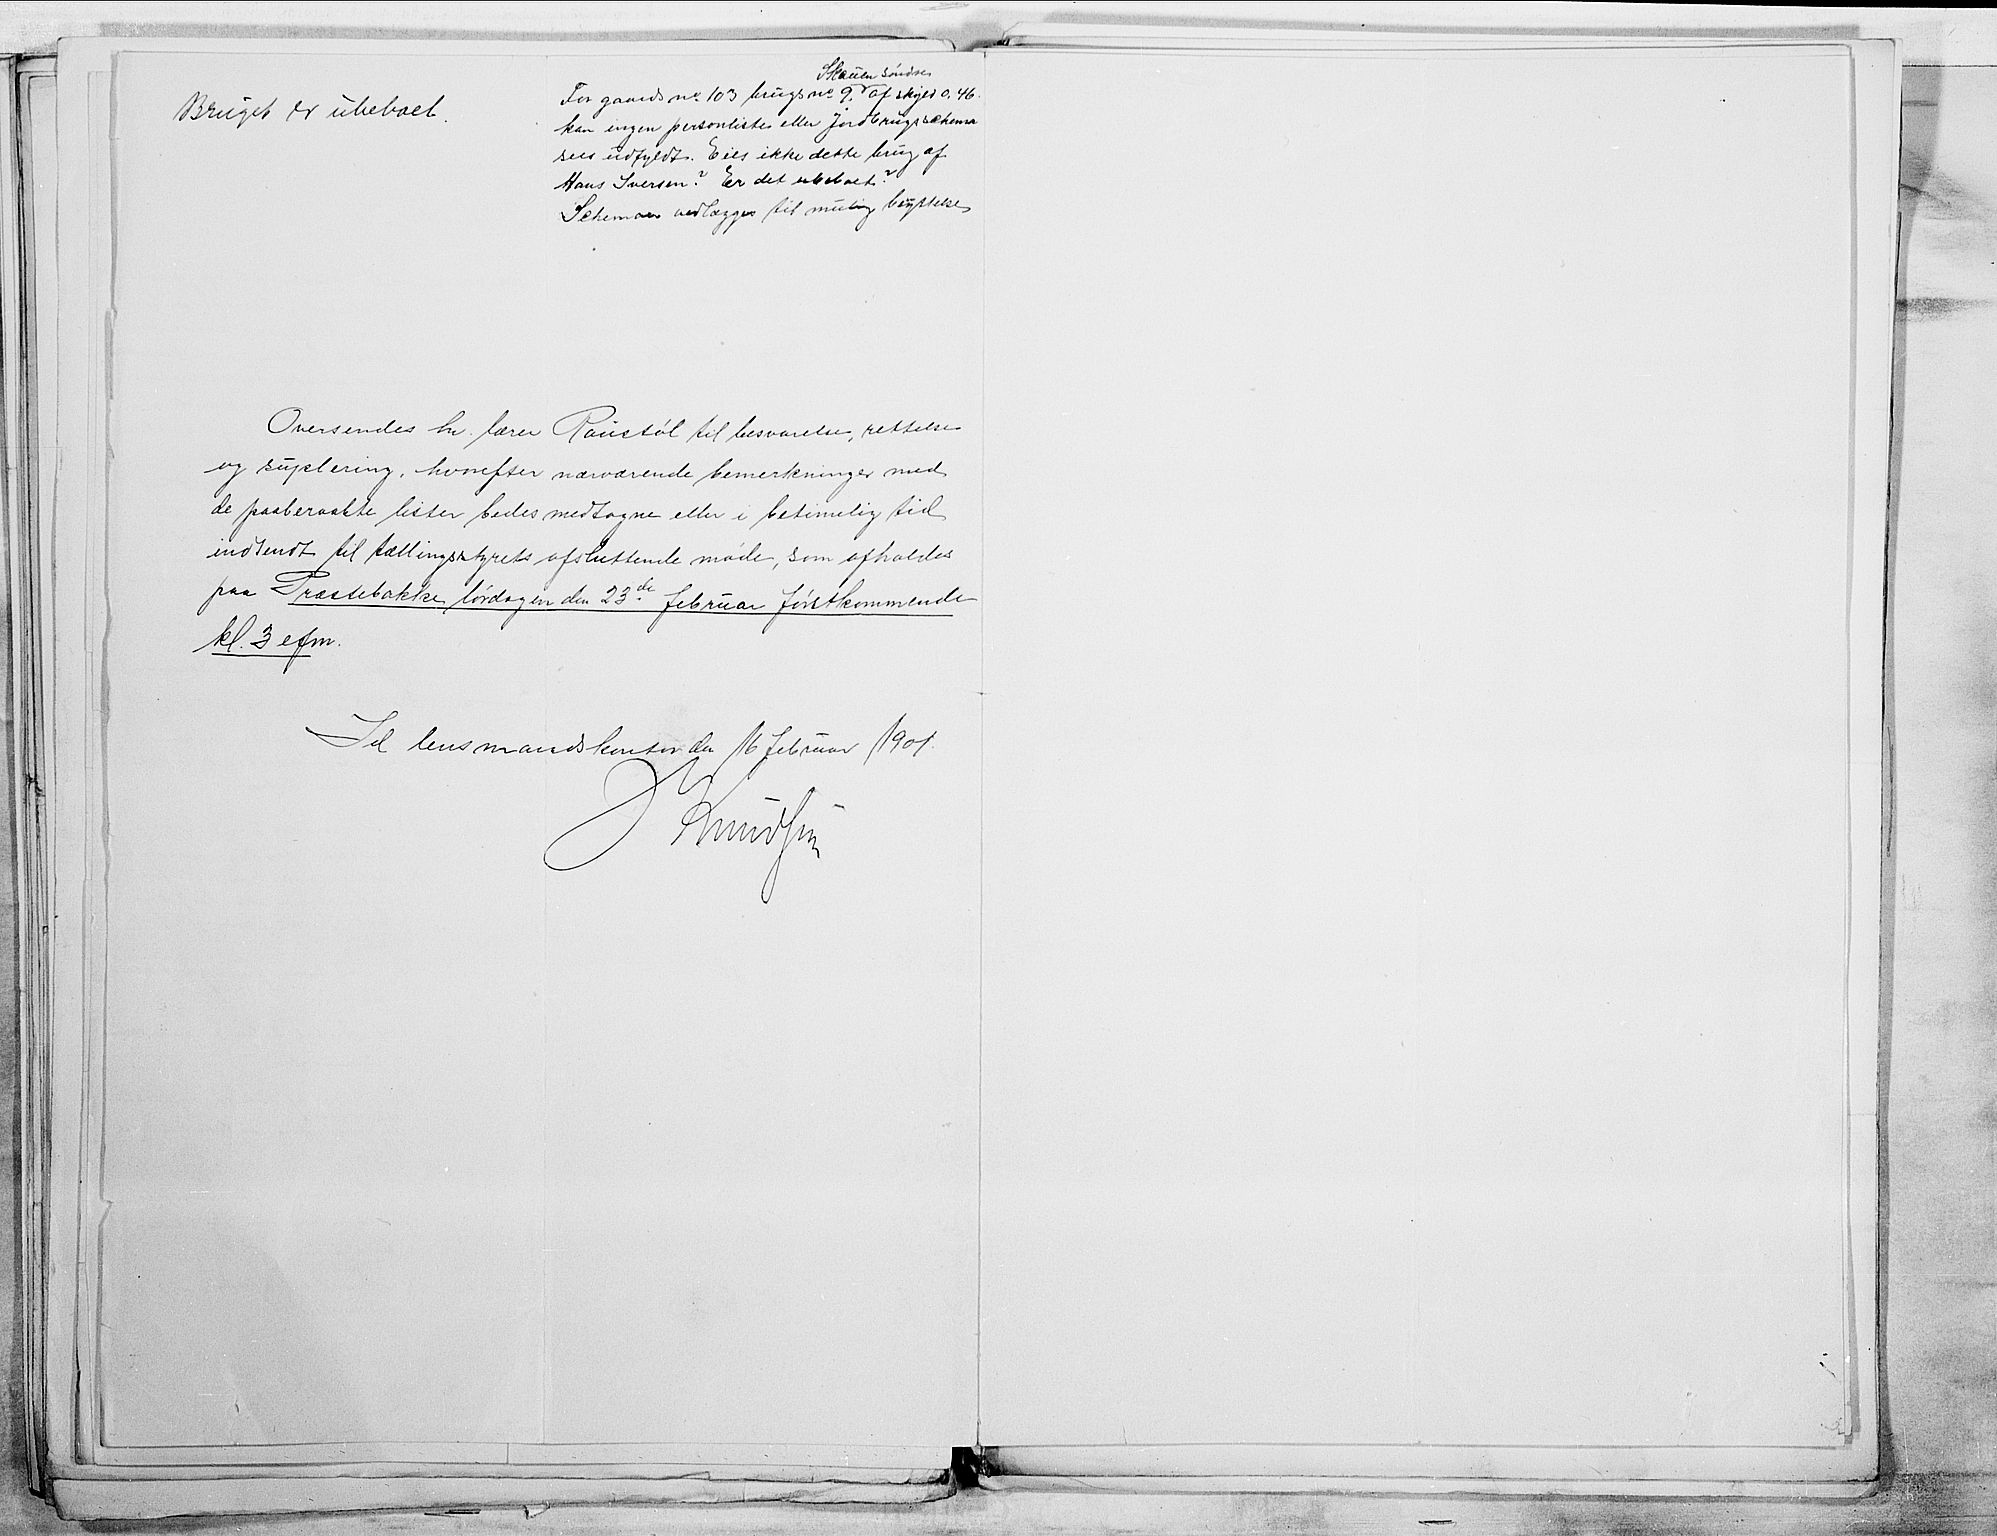 Bruget er ubeboet.
Skauen søndre
For gaards no 103 brugs no 9, af skyld 0,46.
kan ingen personliste eller jordbrugsschema
sees udfyldt. Eies ikke dette brug af
Hans Iversen? Er det ubeboet?
Schemaer vedlægges til mulig benyttelse
Oversendes hr. lærer Raustøl til besvarelse, rettelse
og suplering, hvorefter nærværende bemerkninger med
de paaberaabte lister bedes medtagne eller i betimelig tid
indsendt til tællingsstyrets afsluttende møde, som afholdes
paa Præstebakke lørdagen den 23de februar førstkommende
kl. 3 efm.
Id lensmandskontor den 16 februar 1901.
Knudsen